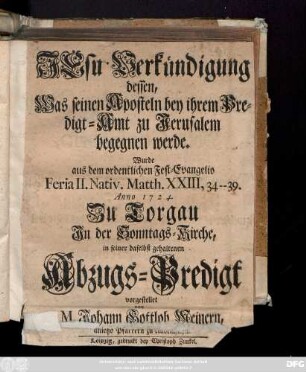 JEsu Verkündigung
dessen,
Was seinen Aposteln bey ihrem Pre-
digt-Amt zu Jerusalem
begegnen werde.
Wurde
aus dem ordentlichen Fest-Evangelio
Feria II. Nativ. Matth. XXIII, 34--39.
Anno 1724.
Zu Torgau
In der Sonntags-Kirche,
in seiner daselbst gehaltenen
Abzugs-Predigt
vorgestellet
M. Johann Gottlob Meinern,
Pfarrern zu
Leipzig, gedruckt bey Christoph Zunkel.